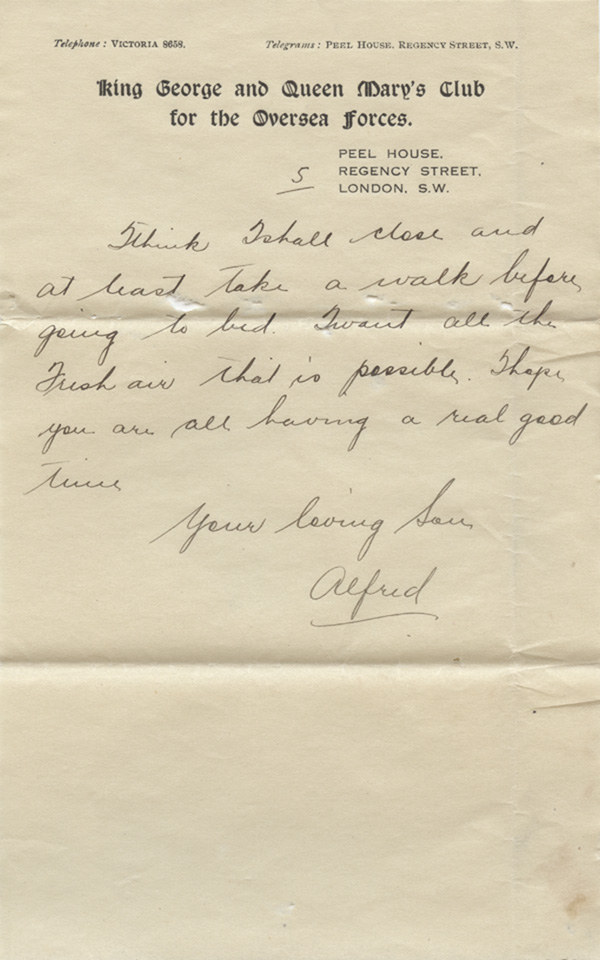 Telephone: VICTORIA 8658. Telegrams: PEEL HOUSE, REGENCY STREET, S.W.
King George and Queen Mary's Club
for the Oversea Forces.
PEEL HOUSE,
5 REGENCY STREET,
LONDON, S.W.
I think I shall close and
at least take a walk before
going to bed. I want all the
Fresh air that is possible. I hope
you are all having a real good
time
Your loving Son
Alfred